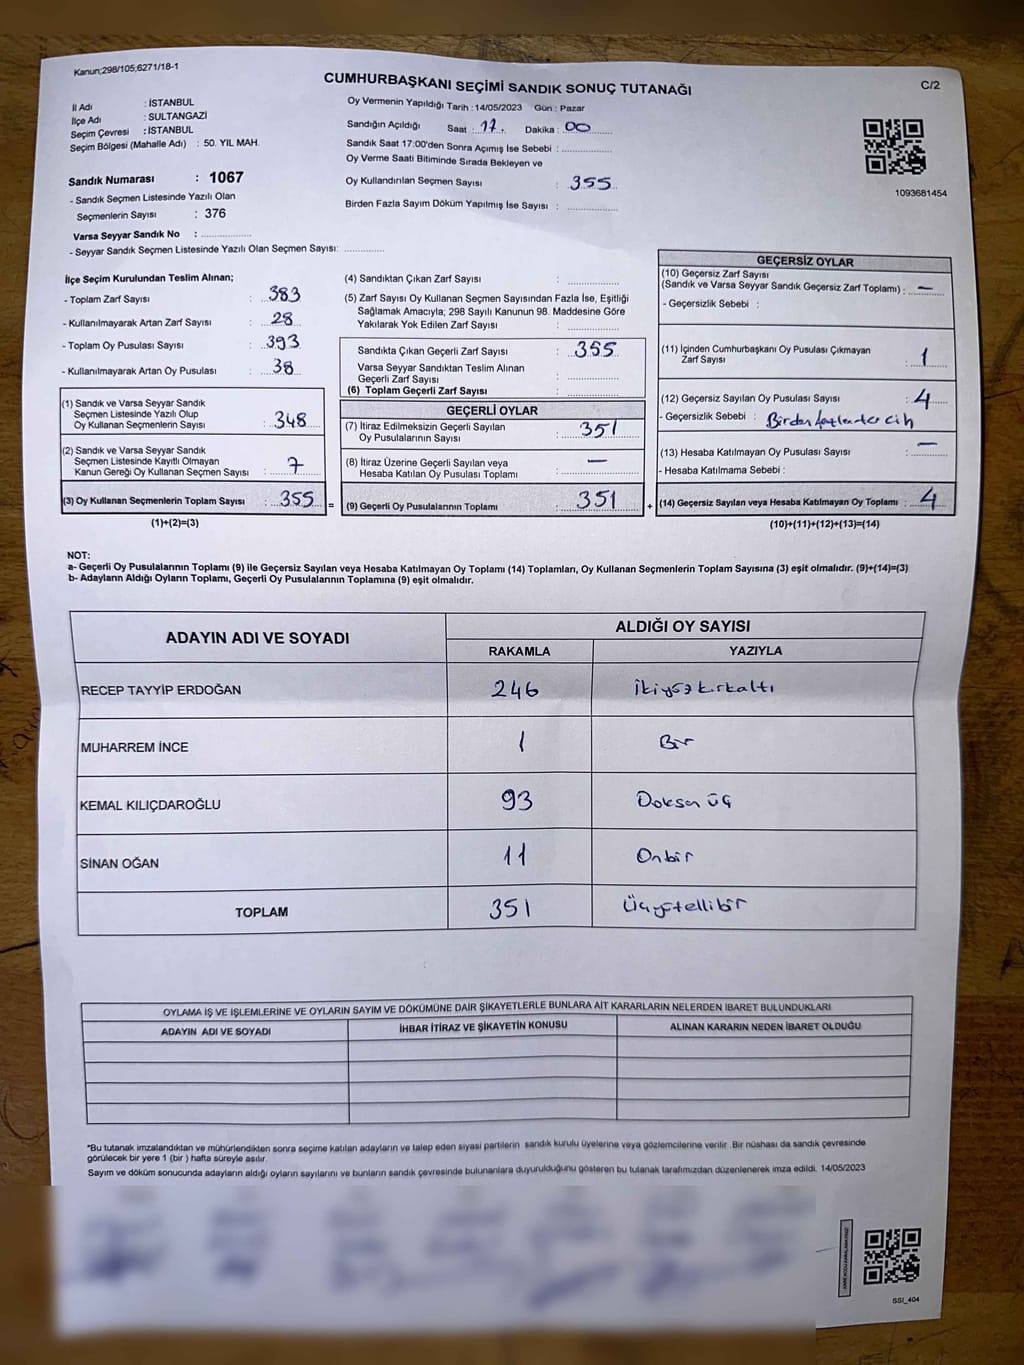 Kanun;298/105;6271/18-1
CUMHURBAŞKANI SEÇİMİ SANDIK SONUÇ TUTANAĞI
C/2
İl Adı : İSTANBUL
İlçe Adı : SULTANGAZİ
Seçim Çevresi : İSTANBUL
Seçim Bölgesi (Mahalle Adı) : 50. YIL MAH.
Sandık Numarası : 1067
- Sandık Seçmen Listesinde Yazılı Olan
Seçmenlerin Sayısı : 376
Varsa Seyyar Sandık No : ..............
- Seyyar Sandık Seçmen Listesinde Yazılı Olan Seçmen Sayısı: ..............
Oy Vermenin Yapıldığı Tarih : 14/05/2023 Gün : Pazar
Sandığın Açıldığı Saat : 17. Dakika : 00
Sandık Saat 17:00'den Sonra Açımış İse Sebebi : ..............
Oy Verme Saati Bitiminde Sırada Bekleyen ve
Oy Kullandırılan Seçmen Sayısı : 355
Birden Fazla Sayım Döküm Yapılmış İse Sayısı : ..............
1093681454
İlçe Seçim Kurulundan Teslim Alınan;
- Toplam Zarf Sayısı : 383
- Kullanılmayarak Artan Zarf Sayısı : 28
- Toplam Oy Pusulası Sayısı : 393
- Kullanılmayarak Artan Oy Pusulası : 38
(1) Sandık ve Varsa Seyyar Sandık
Seçmen Listesinde Yazılı Olup
Oy Kullanan Seçmenlerin Sayısı : 348
(2) Sandık ve Varsa Seyyar Sandık
Seçmen Listesinde Kayıtlı Olmayan
Kanun Gereği Oy Kullanan Seçmen Sayısı : 7
(3) Oy Kullanan Seçmenlerin Toplam Sayısı : 355 =
(1)+(2)=(3)
(4) Sandıktan Çıkan Zarf Sayısı : ..............
(5) Zarf Sayısı Oy Kullanan Seçmen Sayısından Fazla İse, Eşitliği
Sağlamak Amacıyla; 298 Sayılı Kanunun 98. Maddesine Göre
Yakılarak Yok Edilen Zarf Sayısı : ..............
Sandıkta Çıkan Geçerli Zarf Sayısı : 355
Varsa Seyyar Sandıktan Teslim Alınan
Geçerli Zarf Sayısı : ..............
(6) Toplam Geçerli Zarf Sayısı : ..............
GEÇERLİ OYLAR
(7) İtiraz Edilmeksizin Geçerli Sayılan
Oy Pusulalarının Sayısı : 351
(8) İtiraz Üzerine Geçerli Sayılan veya
Hesaba Katılan Oy Pusulası Toplamı : —
(9) Geçerli Oy Pusulalarının Toplamı : 351 +
GEÇERSİZ OYLAR
(10) Geçersiz Zarf Sayısı
(Sandık ve Varsa Seyyar Sandık Geçersiz Zarf Toplamı) : —
- Geçersizlik Sebebi :
(11) İçinden Cumhurbaşkanı Oy Pusulası Çıkmayan
Zarf Sayısı : 1
(12) Geçersiz Sayılan Oy Pusulası Sayısı : 4
- Geçersizlik Sebebi : Birden fazla tercih
(13) Hesaba Katılmayan Oy Pusulası Sayısı : —
- Hesaba Katılmama Sebebi :
(14) Geçersiz Sayılan veya Hesaba Katılmayan Oy Toplamı : 4
(10)+(11)+(12)+(13)=(14)
NOT:
a- Geçerli Oy Pusulalarının Toplamı (9) ile Geçersiz Sayılan veya Hesaba Katılmayan Oy Toplamı (14) Toplamları, Oy Kullanan Seçmenlerin Toplam Sayısına (3) eşit olmalıdır. (9)+(14)=(3)
b- Adayların Aldığı Oyların Toplamı, Geçerli Oy Pusulalarının Toplamına (9) eşit olmalıdır.
ADAYIN ADI VE SOYADI
ALDIĞI OY SAYISI
RAKAMLA YAZIYLA
RECEP TAYYİP ERDOĞAN 246 İkiyüzkırkaltı
MUHARREM İNCE 1 Bir
KEMAL KILIÇDAROĞLU 93 Doksan üç
SİNAN OĞAN 11 Onbir
TOPLAM 351 Üçyüzellibir
OYLAMA İŞ VE İŞLEMLERİNE VE OYLARIN SAYIM VE DÖKÜMÜNE DAİR ŞİKAYETLERLE BUNLARA AİT KARARLARIN NELERDEN İBARET BULUNDUKLARI
ADAYIN ADI VE SOYADI İHBAR İTİRAZ VE ŞİKAYETİN KONUSU ALINAN KARARIN NEDEN İBARET OLDUĞU
*Bu tutanak imzalandıktan ve mühürlendikten sonra seçime katılan adayların ve talep eden siyasi partilerin sandık kurulu üyelerine veya gözlemcilerine verilir .Bir nüshası da sandık çevresinde
görülecek bir yere 1 (bir ) hafta süreyle asılır.
Sayım ve döküm sonucunda adayların aldığı oyların sayılarını ve bunların sandık çevresinde bulunanlara duyurulduğunu gösteren bu tutanak tarafımızdan düzenlenerek imza edildi. 14/05/2023
SSI_404